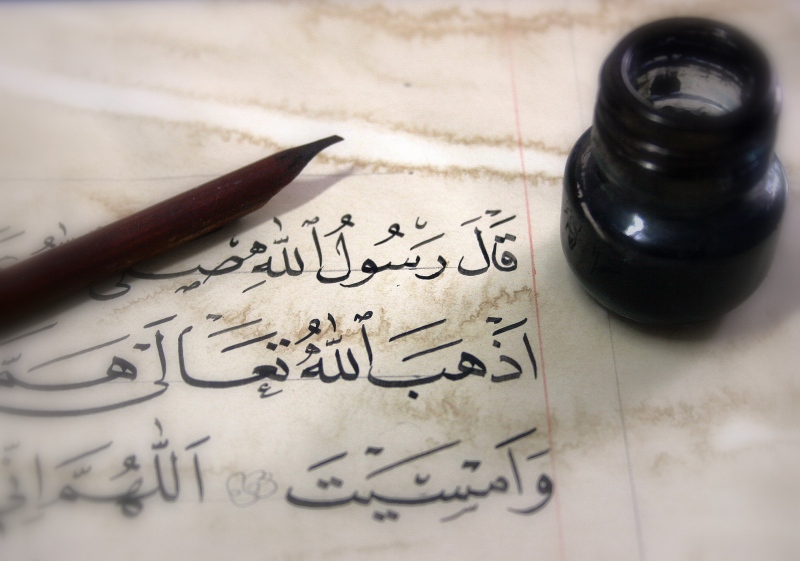 قَالَ رَسُولُ ٱللّٰهِ
اَذْهَبَ ٱللّٰهُ تَعَالَىٰ
وَاَمْسَيْتَ اَللّٰهُمَّ اِنِّي